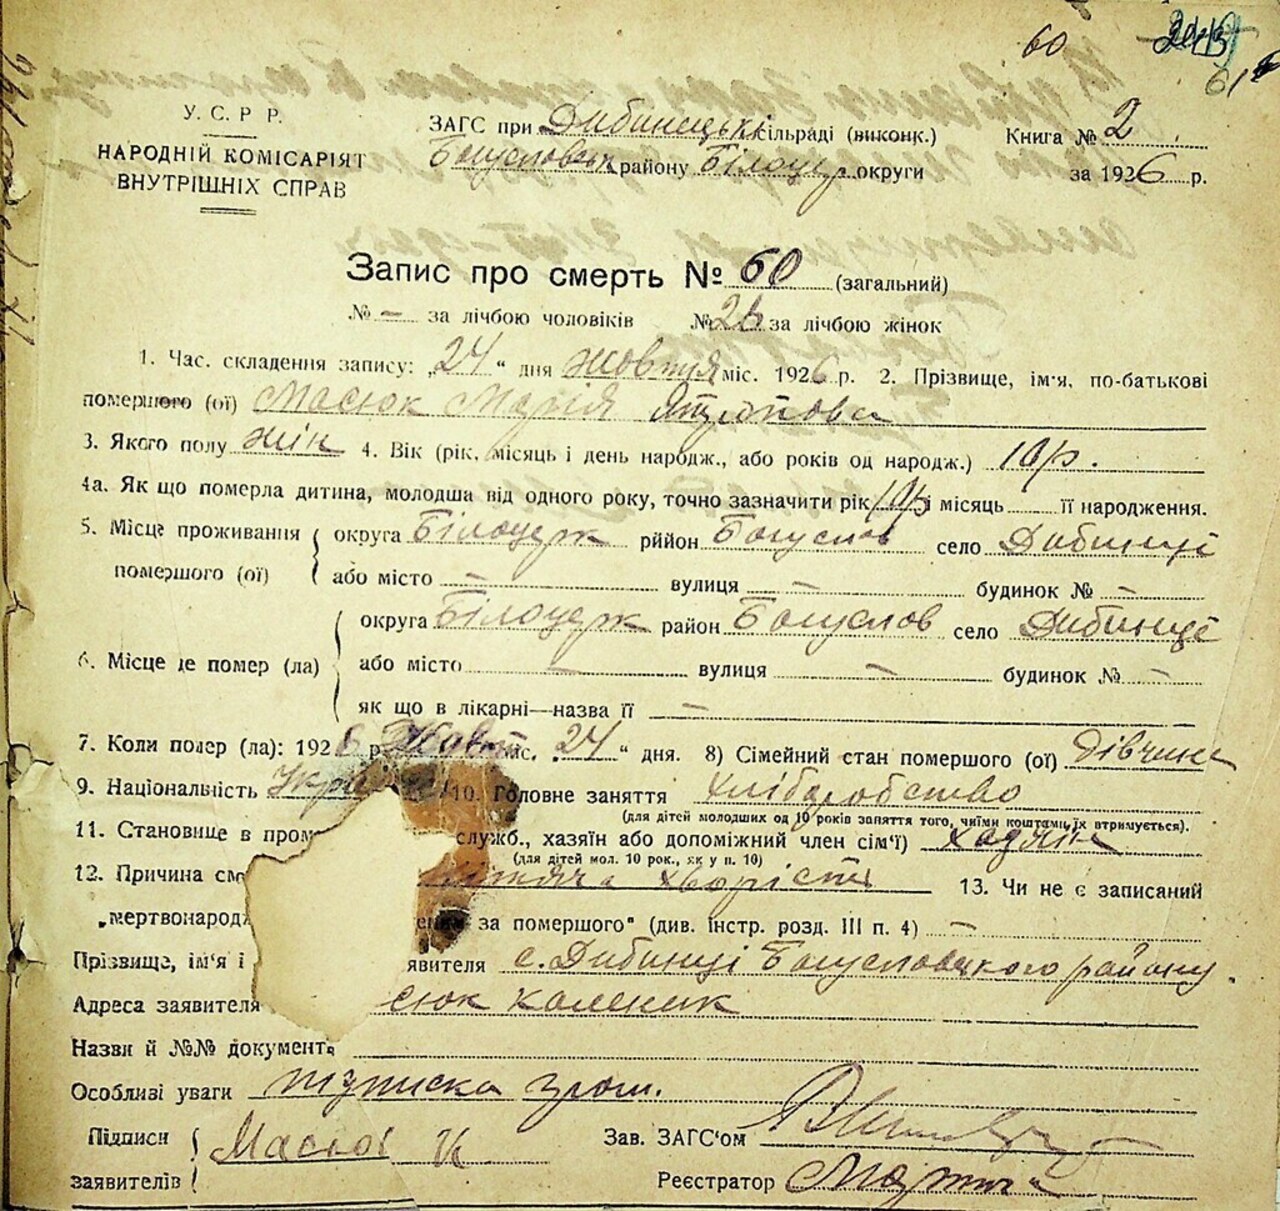 60
61
У. С. Р. Р.
НАРОДНІЙ КОМІСАРІЯТ
ВНУТРІШНІХ СПРАВ
ЗАГС при Дибинецькі сільраді (виконк.)
Богуславськ району Білоцер. округи
Книга № 2
за 1926 р.
Запис про смерть № 60 (загальний)
№ — за лічбою чоловіків № 26 за лічбою жінок
1. Час. складення запису: „24“ дня жовтня міс. 1926 р. 2. Прізвище, ім'я, по-батькові
помершого (ої) Масюк Марія
3. Якого полу жін 4. Вік (рік, місяць і день народж., або років од народж.) 10 р.
4а. Як що померла дитина, молодша від одного року, точно зазначити рік 10 р і місяць її народження.
5. Місце проживання помершого (ої) округа Білоцерк рййон Богуслов село Дибинці
або місто — вулиця — будинок № —
6. Місце де помер (ла) округа Білоцерк район Богуслов село Дибинці
або місто — вулиця — будинок № —
як що в лікарні—назва її —
7. Коли помер (ла): 1926 р. Жовт міс. 24“ дня. 8) Сімейний стан помершого (ої) дівчина
9. Національність Укра 10. Головне заняття хліборобство
(для дітей молодших од 10 років заняття того, чиїми коштами їх втримується).
11. Становище в пром служб., хазяїн або допоміжний член сім'ї) хазяїн
(для дітей мол. 10 рок., як у п. 10)
12. Причина см хворість 13. Чи не є записаний
„мертвонарод за помершого“ (див. інстр. розд. III п. 4) —
Прізвище, ім'я і аявителя с. Дибинці Богуславского району.
Адреса заявителя сюк Каленик
Назви й №№ документ
Особливі уваги підписка грош.
Підписи заявителів Масюк К
Зав. ЗАГС'ом
Реєстратор